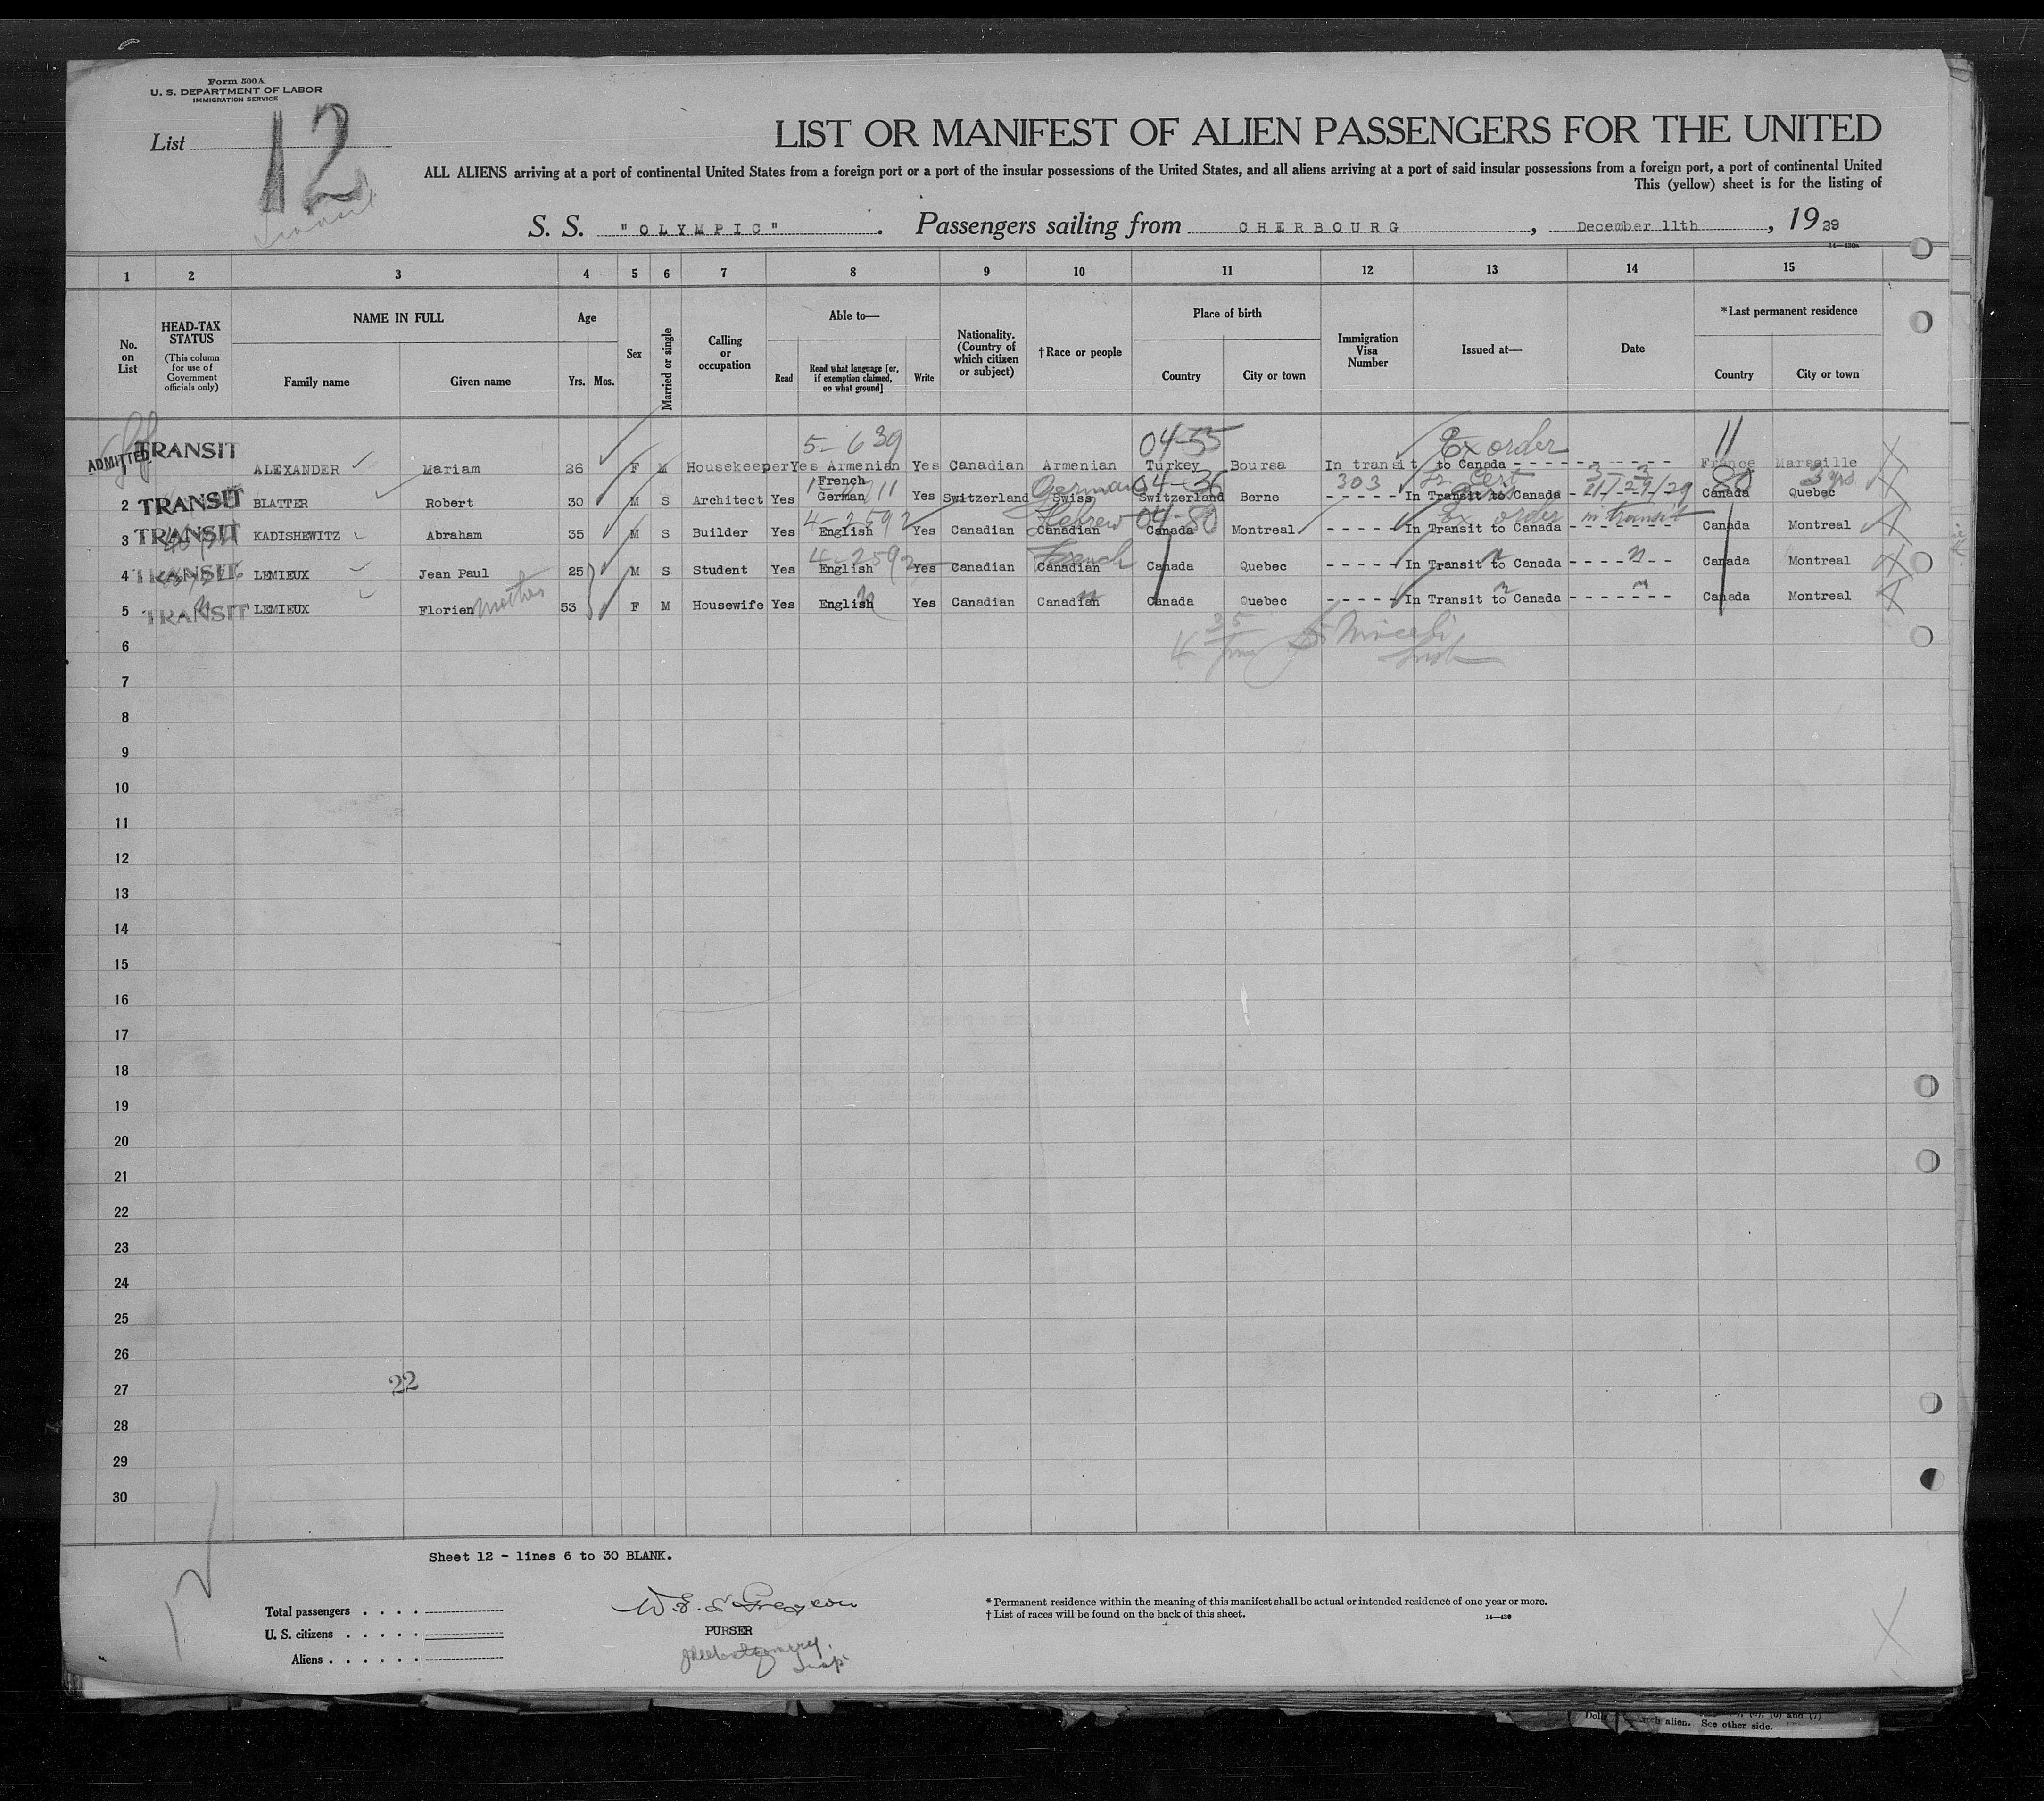 Form 500A
U. S. DEPARTMENT OF LABOR
IMMIGRATION SERVICE
List 12
Transit
LIST OR MANIFEST OF ALIEN PASSENGERS FOR THE UNITED
ALL ALIENS arriving at a port of continental United States from a foreign port or a port of the insular possessions of the United States, and all aliens arriving at a port of said insular possessions from a foreign port, a port of continental United
This (yellow) sheet is for the listing of
S. S. "OLYMPIC". Passengers sailing from CHERBOURG, December 11th, 1929
1 2 3 4 5 6 7 8 9 10 11 12 13 14 15
No. on List
HEAD-TAX STATUS (This column for use of Government officials only)
NAME IN FULL Family name Given name
Age Yrs. Mos.
Sex
Married or single
Calling or occupation
Able to— Read Read what language [or, if exemption claimed, on what ground] Write
Nationality. (Country of which citizen or subject)
† Race or people
Place of birth Country City or town
Immigration Visa Number
Issued at—
Date
* Last permanent residence Country City or town
5-639 04-55 Ex order 11
ADMITTED TRANSIT ALEXANDER Mariam 26 F M Housekeeper Yes Armenian Yes Canadian Armenian Turkey Boursa In transit to Canada - - - - - - - - - - - France Marseille
French German 04-36 303 80 3 yrs
2 TRANSIT BLATTER Robert 30 M S Architect Yes German Yes Switzerland Swiss Switzerland Berne - - - - - In Transit to Canada - Canada Quebec
4-2592 Hebrew 04-80 Ex order in transit
3 TRANSIT KADISHEWITZ Abraham 35 M S Builder Yes English Yes Canadian Canadian Canada Montreal - - - - - In Transit to Canada - - - - - - - Canada Montreal
4-2592 French
4 TRANSIT LEMIEUX Jean Paul 25 M S Student Yes English Yes Canadian Canadian Canada Quebec - - - - - In Transit to Canada - - - - - - - Canada Montreal
5 TRANSIT LEMIEUX Florien mother 53 F M Housewife Yes English Yes Canadian Canadian Canada Quebec - - - - - In Transit to Canada - - - - - - - Canada Montreal
6
7
8
9
10
11
12
13
14
15
16
17
18
19
20
21
22
23
24
25
26
22
27
28
29
30
Sheet 12 - lines 6 to 30 BLANK.
Total passengers . . . .
U. S. citizens . . . . .
Aliens . . . . . .
PURSER
Insp.
* Permanent residence within the meaning of this manifest shall be actual or intended residence of one year or more.
† List of races will be found on the back of this sheet.
14—430
alien. See other side.